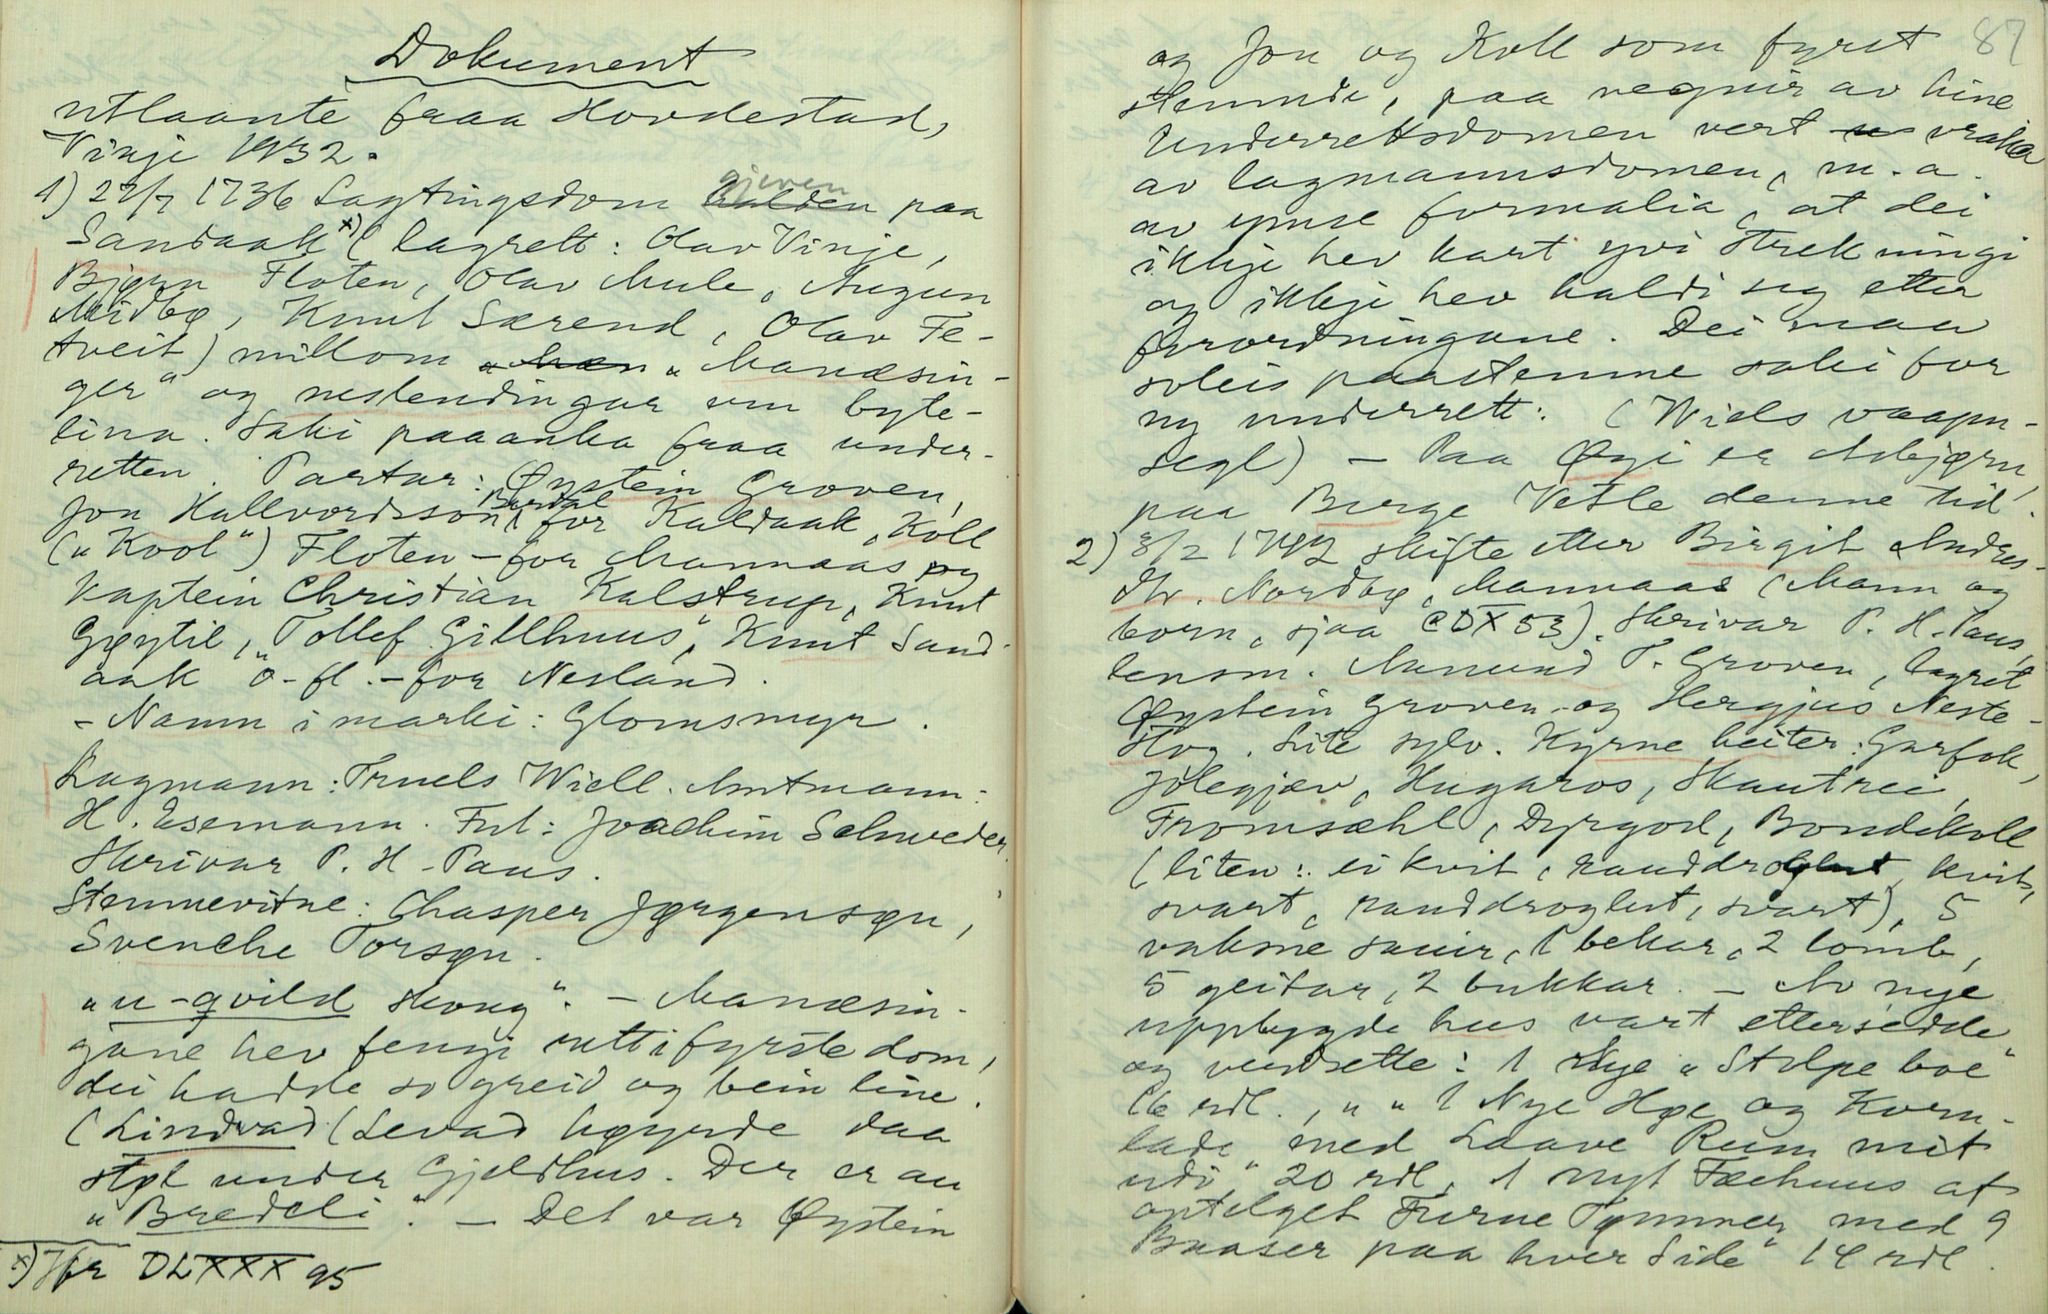 Dokument
utlaante fraa Hovdestad,
Vinje 1932.
1) 27/7 1736 Lagtingsdom halden gjeven paa
Sandaak x) (lagrett: Olav Vinje,
Bjørn Floten, Olav Mule, Augun
Midbø, Knut Særend, Olav Fe-
tveit) millom "Manæsin-
ger" og neslendingar um byte-
lina. Saki paaanka fraa under-
retten. Partar: Øystein Groven,
Jon Hallvordsson Berdal for Kaldaak, Koll
("Kool") Floten – for Mannaas og
Kaptein Christian Kalstrup, Knut
Gøytil, "Tollef Gillhuus", Knut Sand-
aak o. fl. – for Nesland.
– Namn i marki: Glomsmyr.
Lagmann: Truels Wiell. Amtmann:
H. Esemann. Fut: Joachim Schweder.
Skrivar P. H. Paus.
Stemnevitne: Chasper Jørgensøn,
Svenche Torsøn.
"u-qvild skoug". – Manæsin-
gane hev fengi rett i fyrste dom,
dei hadde so greid og bein line.
(Lindvad (Levad høyrde daa
støl under Gjeldhus. Der er au
"Bredeli". – Det var Øystein
x) Jfr DLXXX 95
87
og Jon og Koll som fyrst
stemnde, paa vegnir av hine
Underrettsdomen vert vraka
av lagmannsdomen, m. a.
av ymse formalia, at dei
ikkje hev kart yvi strekningi
og ikkje hev haldi seg etter
forordningane. Dei maa
soleis paastemne saki for
ny underrett: (Wiels vaapn-
segl) – Paa Øygi er Asbjørn,
paa Berge Vetle denne tid.
2) 8/2 1742 skifte etter Birgit Andres-
dtr. Nordbø, Mannaas (Mann og
born, sjaa CDX 53). Skrivar P. H. Paus,
lensm. Aamund T. Groven, lagret
Øystein Groven og Hergjus Neste-
stog. Lite sylv. Kyrne heiter: Garfok,
Jolegjæv, Hugaros, Skautrei,
Fromsæhl, Dyrgod, Bondekoll
(liten: ei kvit, randdroglut, kvit,
svart, randdroglut, svart), 5
vaksne sauir, 1 bekar, 2 lomb,
5 geitar, 2 bukkar. – Av nye
uppbygde hus vart ettersedde
og verdsette: 1 Nye "Stolpe boe"
16 rdl., " " 1 Nye Høe og Korn-
lade "med Laave Rum mit
udi" 20 rdl, 1 nyt Fæhuus af
optelget Furue Tømmer med 9
Baaser paa hver Side" 14 rdl.